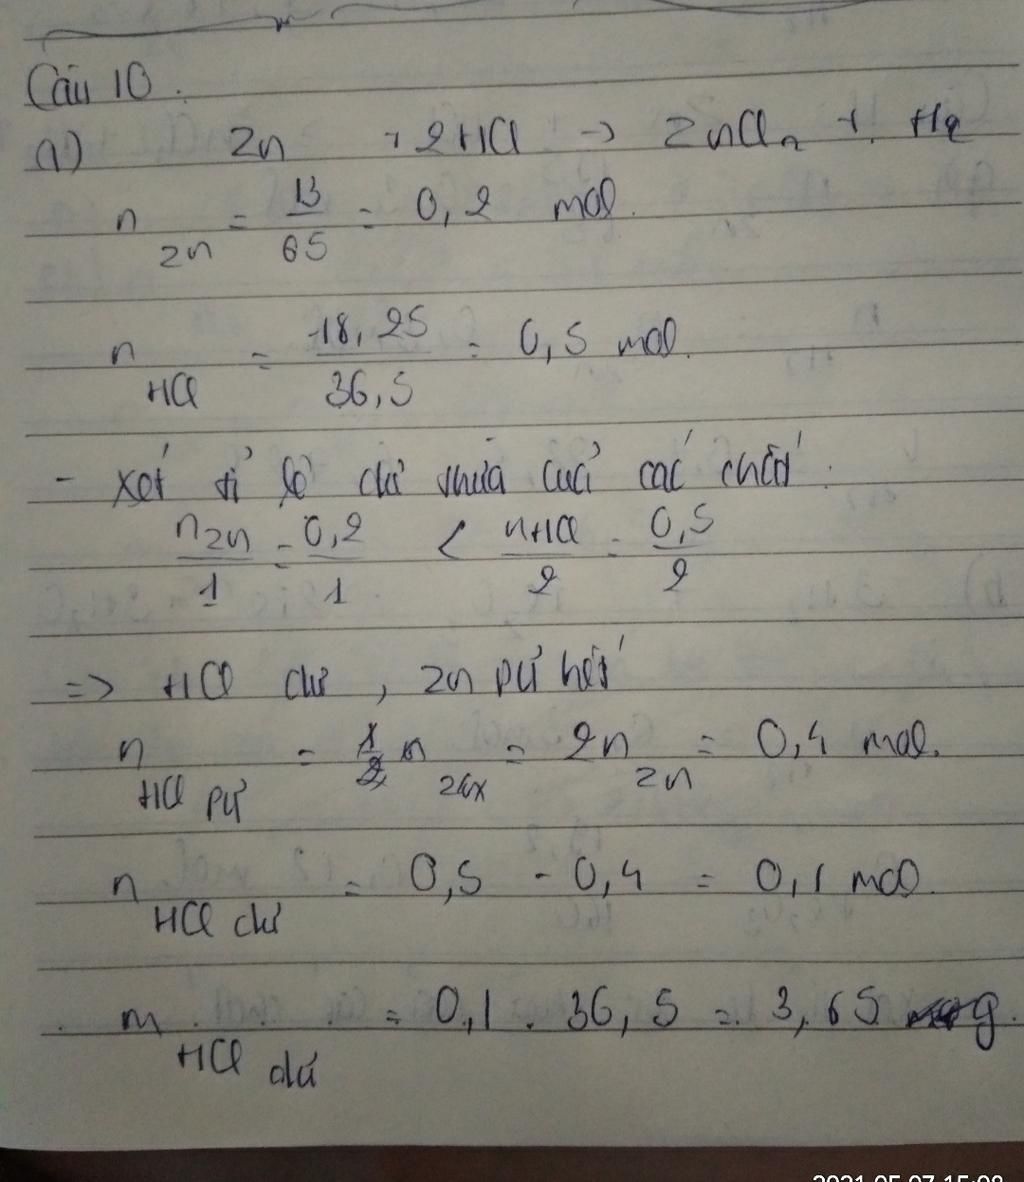 Câu 10.
a) Zn + 2HCl -> ZnCl2 + H2
n Zn = 13/65 = 0,2 mol.
n HCl = 18,25/36,5 = 0,5 mol.
- Xét tỉ lệ dư thừa của các chất:
nZn/1 = 0,2/1 < nHCl/2 = 0,5/2
=> HCl dư, Zn pứ hết
n HCl pứ = 2n Zn = 0,4 mol.
n HCl dư = 0,5 - 0,4 = 0,1 mol.
m HCl dư = 0,1 . 36,5 = 3,65 g.